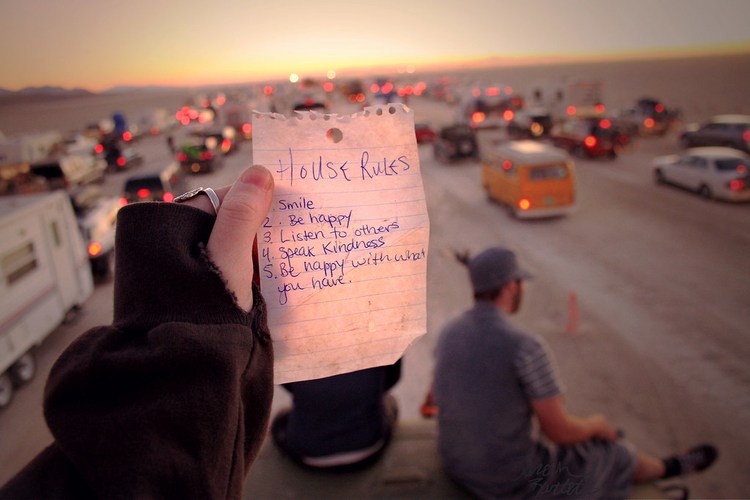 HOUSE RULES
Smile
2. Be happy
3. Listen to others
4. Speak Kindness
5. Be happy with what
you have.